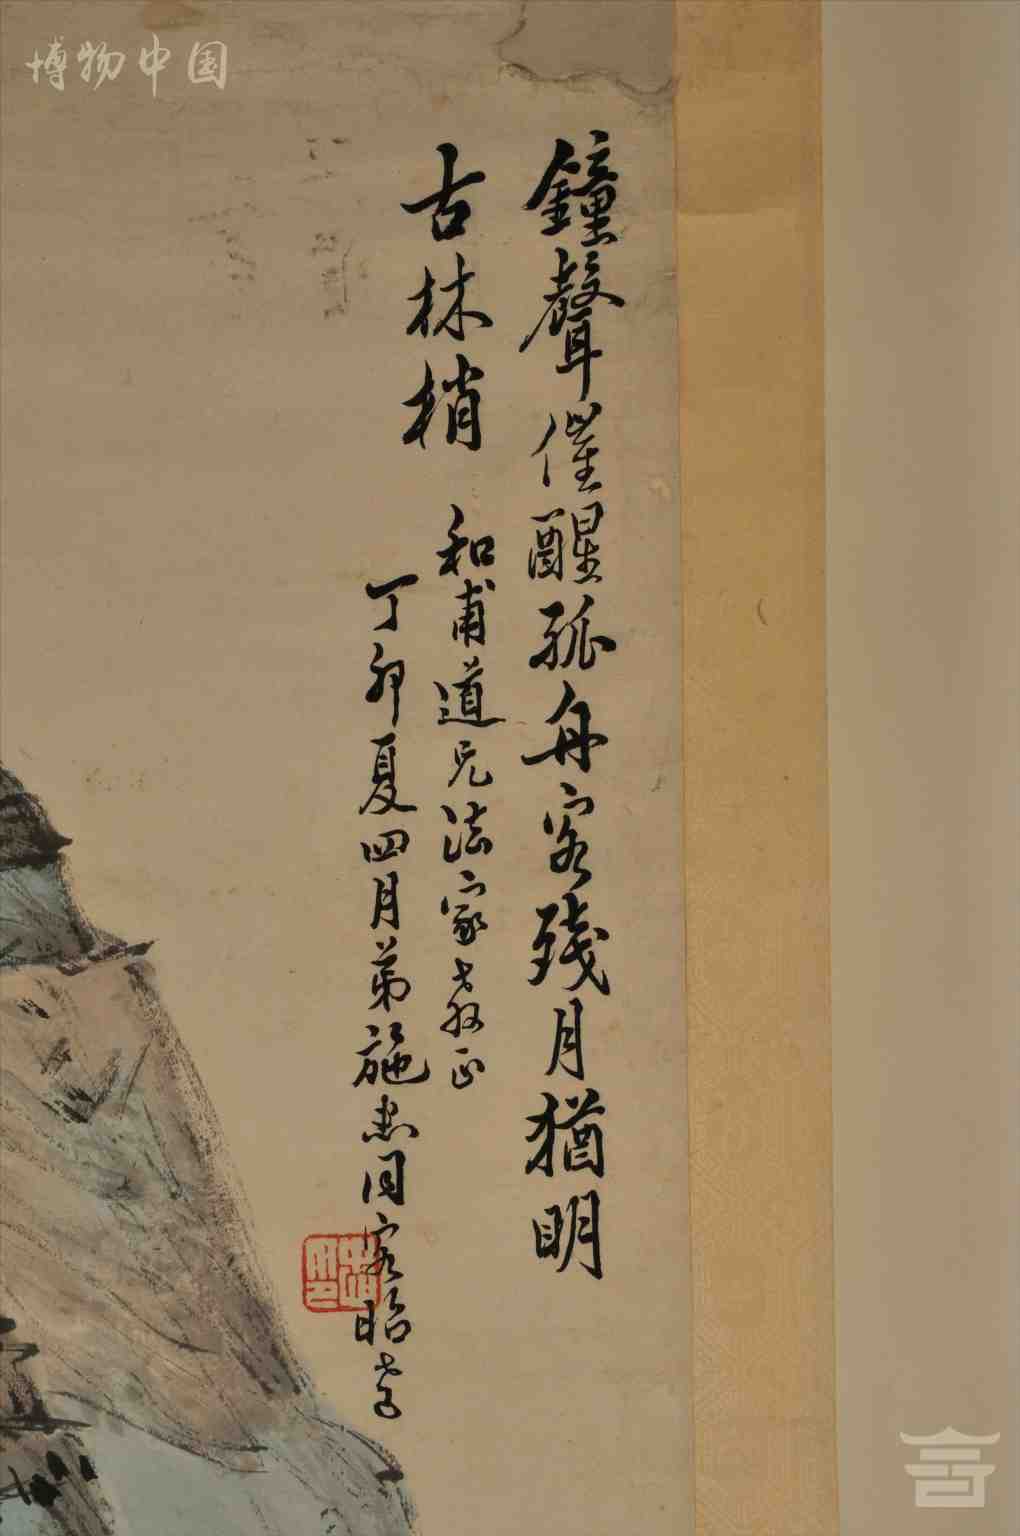 博物中国
鐘聲催醒孤舟客殘月猶明
古林梢
和甫道兄法家教正
丁卯夏四月弟施忠同客昭